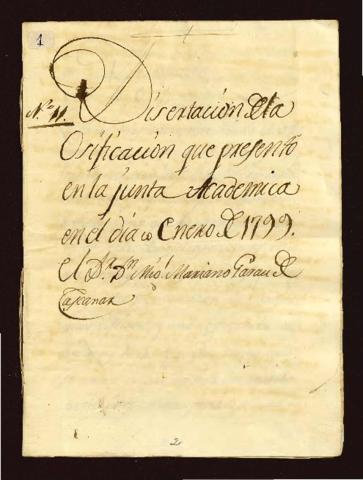 1
Nº 11.
Disertación de la
Osificación que presentó
en la junta Academica
en el día 10 Enero de 1799.
el Dr. Dn. Mariano
2